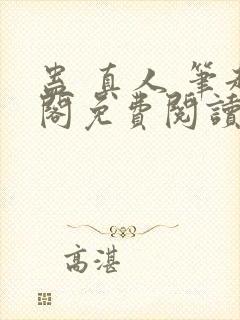 蛊真人 筆趣
閣免費閱讀
高湛